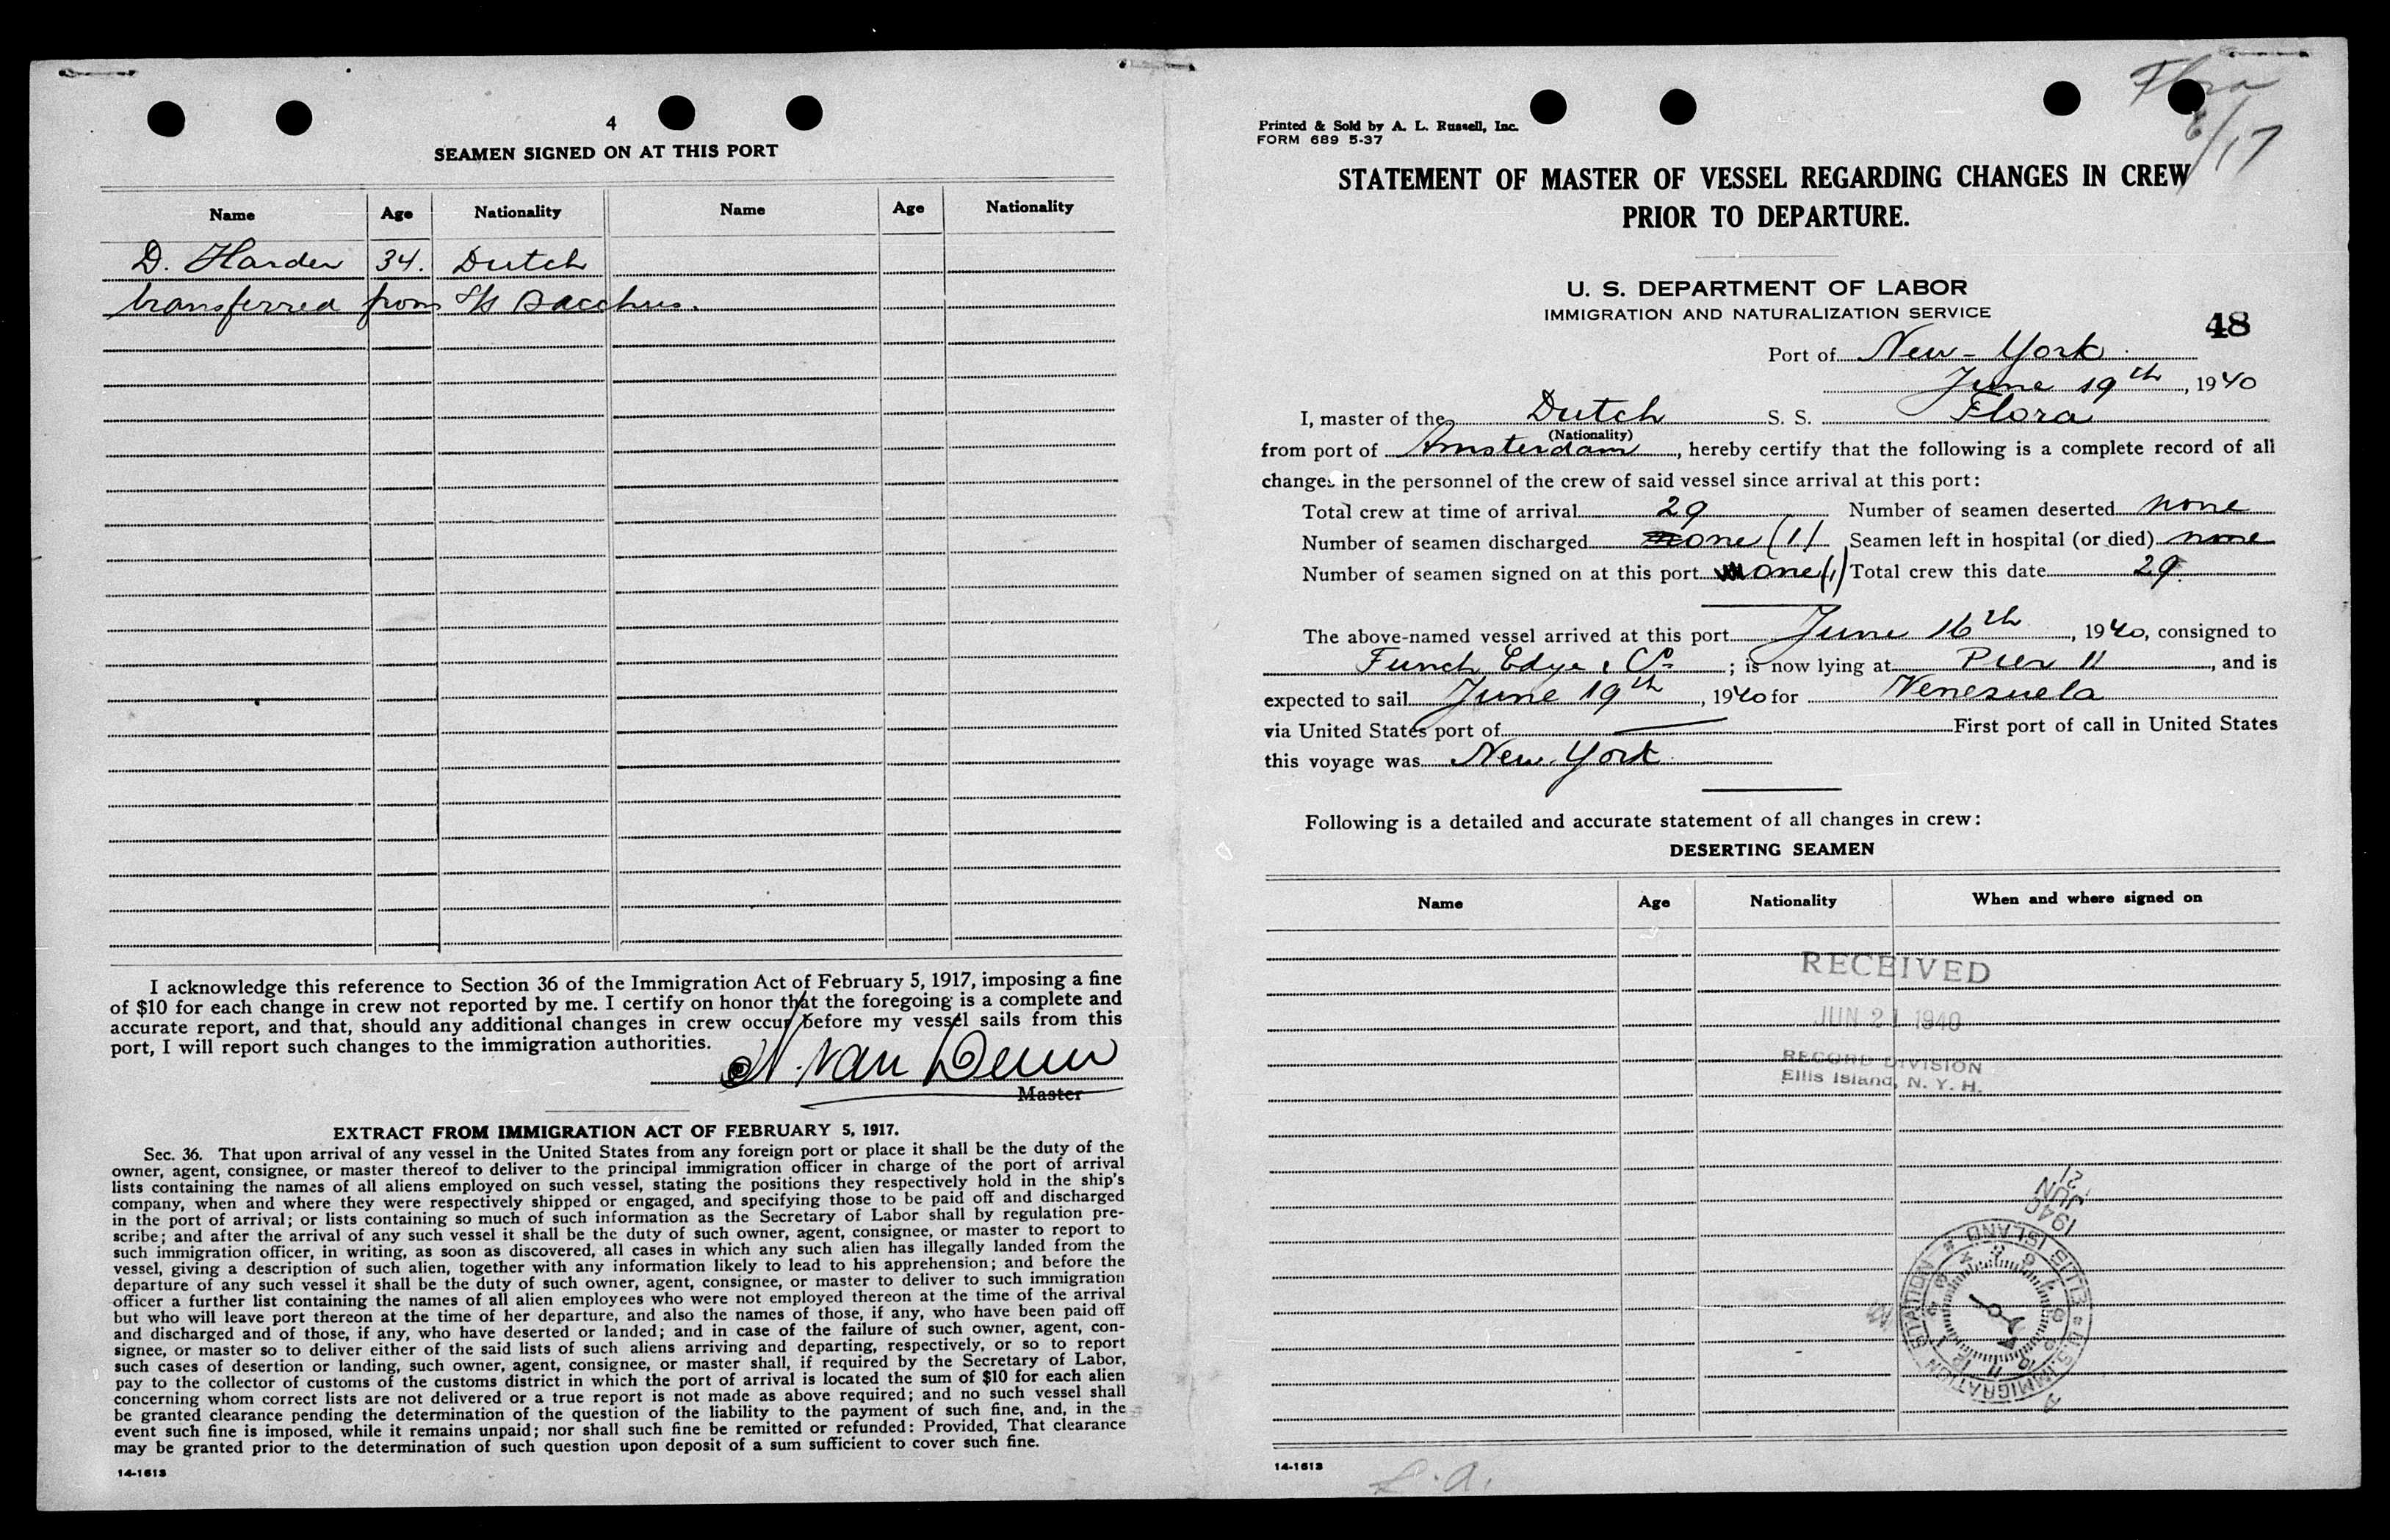 4
SEAMEN SIGNED ON AT THIS PORT
Name Age Nationality Name Age Nationality
D. Harder 34. Dutch
transferred from S/s Bacchus.
I acknowledge this reference to Section 36 of the Immigration Act of February 5, 1917, imposing a fine
of $10 for each change in crew not reported by me. I certify on honor that the foregoing is a complete and
accurate report, and that, should any additional changes in crew occur before my vessel sails from this
port, I will report such changes to the immigration authorities.
Master
EXTRACT FROM IMMIGRATION ACT OF FEBRUARY 5, 1917.
Sec. 36. That upon arrival of any vessel in the United States from any foreign port or place it shall be the duty of the
owner, agent, consignee, or master thereof to deliver to the principal immigration officer in charge of the port of arrival
lists containing the names of all aliens employed on such vessel, stating the positions they respectively hold in the ship's
company, when and where they were respectively shipped or engaged, and specifying those to be paid off and discharged
in the port of arrival; or lists containing so much of such information as the Secretary of Labor shall by regulation pre-
scribe; and after the arrival of any such vessel it shall be the duty of such owner, agent, consignee, or master to report to
such immigration officer, in writing, as soon as discovered, all cases in which any such alien has illegally landed from the
vessel, giving a description of such alien, together with any information likely to lead to his apprehension; and before the
departure of any such vessel it shall be the duty of such owner, agent, consignee, or master to deliver to such immigration
officer a further list containing the names of all alien employees who were not employed thereon at the time of the arrival
but who will leave port thereon at the time of her departure, and also the names of those, if any, who have been paid off
and discharged and of those, if any, who have deserted or landed; and in case of the failure of such owner, agent, con-
signee, or master so to deliver either of the said lists of such aliens arriving and departing, respectively, or so to report
such cases of desertion or landing, such owner, agent, consignee, or master shall, if required by the Secretary of Labor,
pay to the collector of customs of the customs district in which the port of arrival is located the sum of $10 for each alien
concerning whom correct lists are not delivered or a true report is not made as above required; and no such vessel shall
be granted clearance pending the determination of the question of the liability to the payment of such fine, and, in the
event such fine is imposed, while it remains unpaid; nor shall such fine be remitted or refunded: Provided, That clearance
may be granted prior to the determination of such question upon deposit of a sum sufficient to cover such fine.
14-1613
Flora
6/17
Printed & Sold by A. L. Russell, Inc.
FORM 689 5-37
STATEMENT OF MASTER OF VESSEL REGARDING CHANGES IN CREW
PRIOR TO DEPARTURE.
U. S. DEPARTMENT OF LABOR
IMMIGRATION AND NATURALIZATION SERVICE
48
Port of New-York.
June 19th, 1940
I, master of the Dutch S. S. Flora
(Nationality)
from port of Amsterdam, hereby certify that the following is a complete record of all
changes in the personnel of the crew of said vessel since arrival at this port:
Total crew at time of arrival 29 Number of seamen deserted none
Number of seamen discharged one (1) Seamen left in hospital (or died) none
Number of seamen signed on at this port one (1) Total crew this date 29.
The above-named vessel arrived at this port June 16th, 1940, consigned to
Funch Edye & Co; is now lying at Pier 11, and is
expected to sail June 19th, 1940 for Venezuela
via United States port of — First port of call in United States
this voyage was New-York
Following is a detailed and accurate statement of all changes in crew:
DESERTING SEAMEN
Name Age Nationality When and where signed on
RECEIVED
JUN 21 1940
RECORD DIVISION
Ellis Island, N. Y. H.
1940
JUN
21
ELLIS ISLAND * U.S. IMMIGRATION STATION *
14-1613